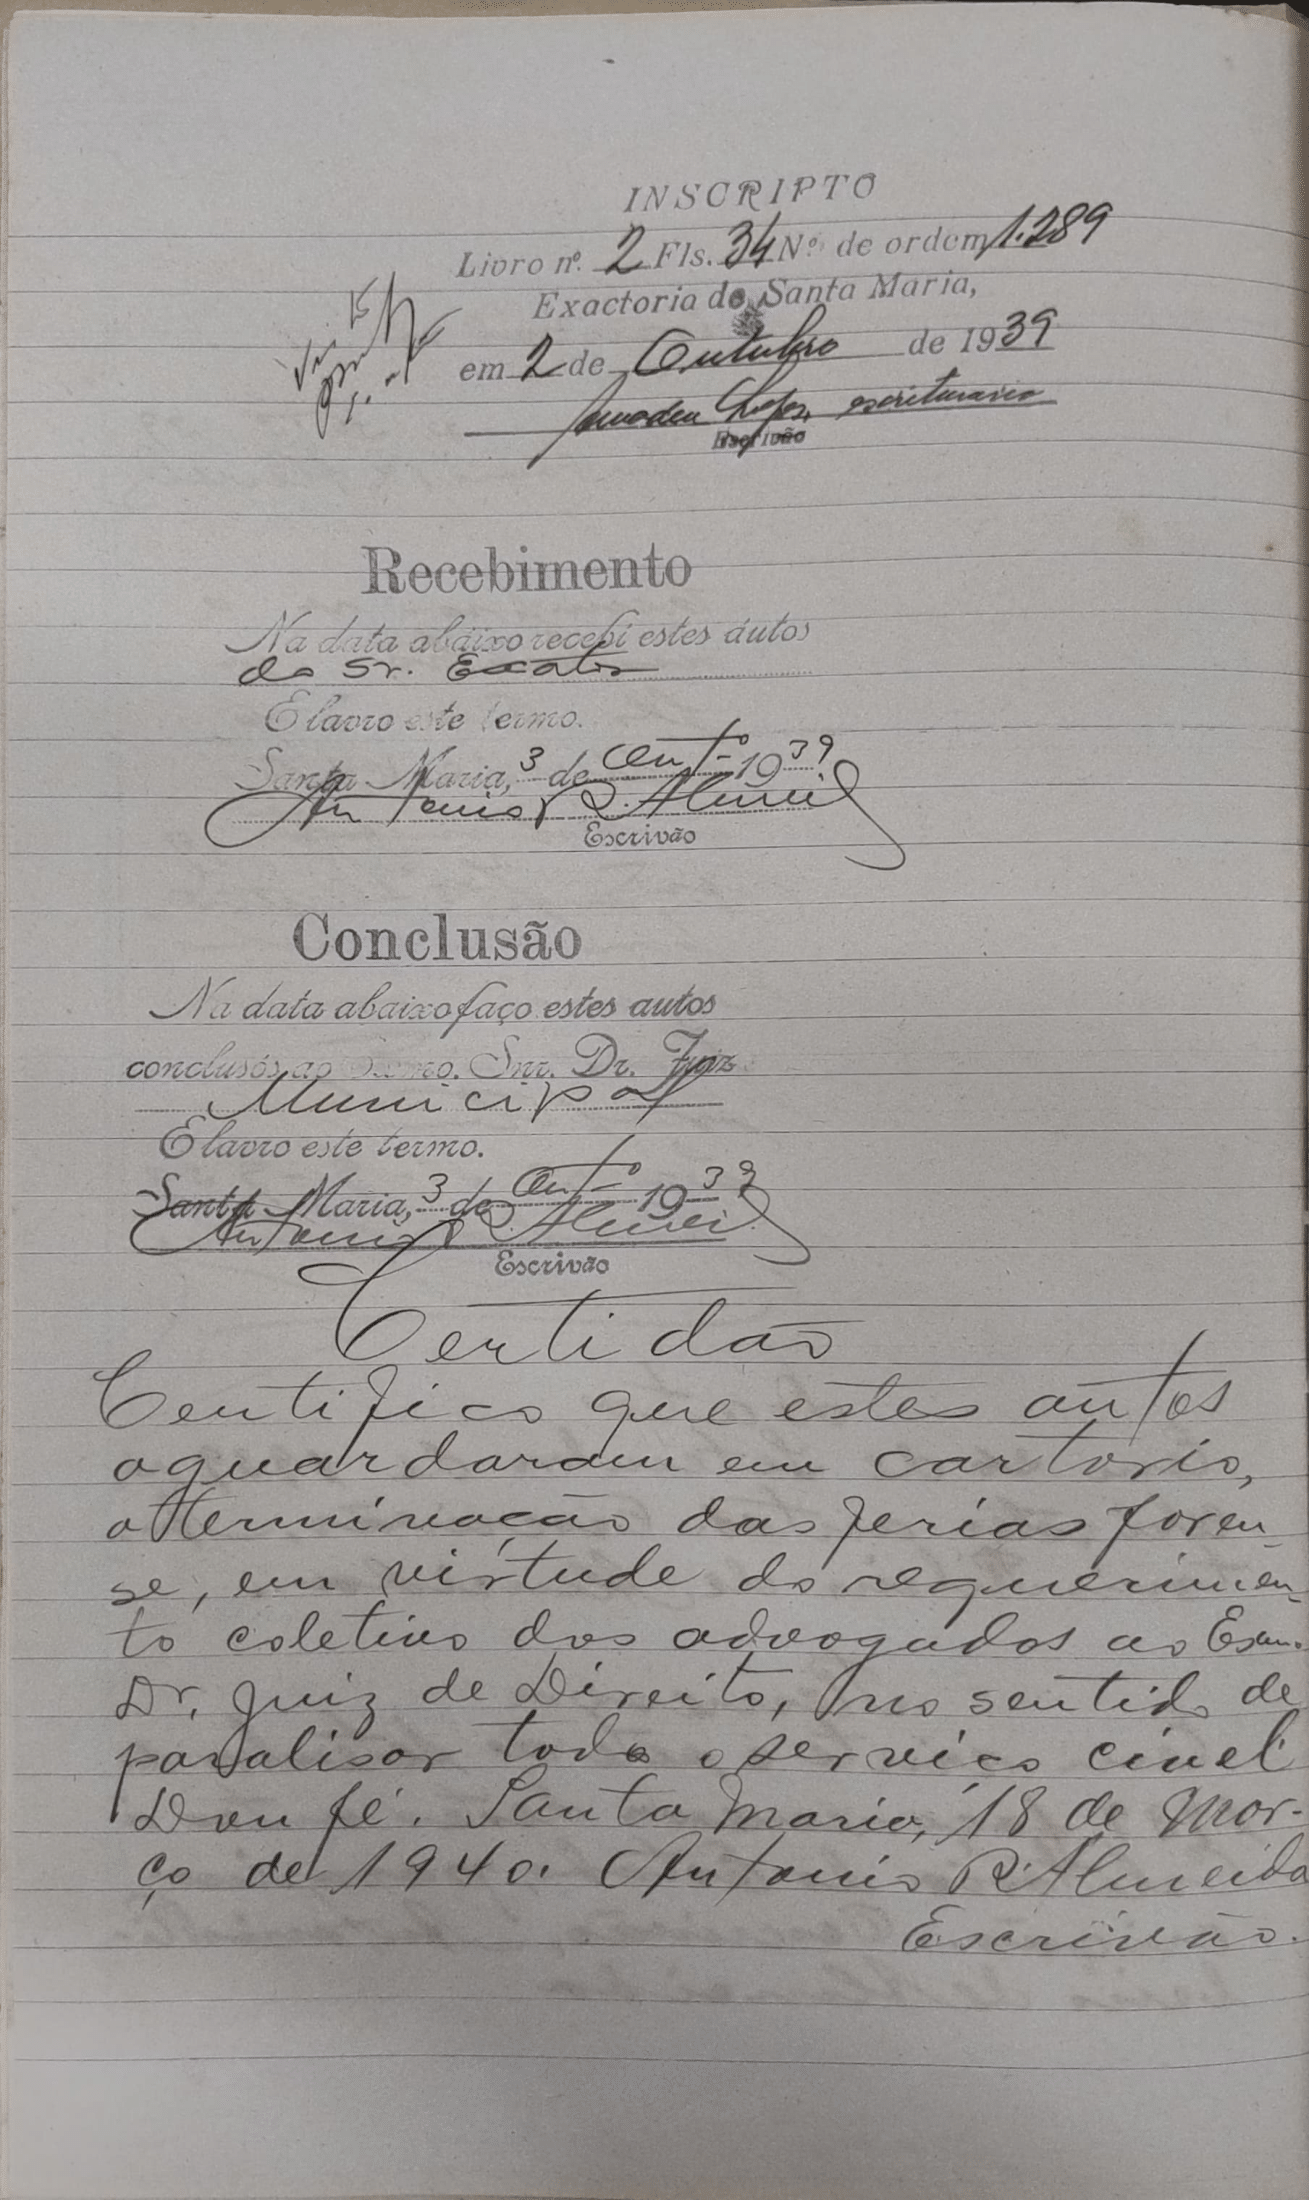 INSCRIPTO
Livro nº. 2 Fls. 34 Nº. de ordem 1.289
Exactoria de Santa Maria,
em 2 de Outubro de 1939
Lopes, escriturario
Escrivão
Recebimento
Na data abaixo recebi estes autos
do Sr. Exator
E lavro este termo.
Santa Maria, 3 de Outº 1939
Antonio R. Almeida
Escrivão
Conclusão
Na data abaixo faço estes autos
conclusos ao Exmo. Snr. Dr. Juiz
Municipal
E lavro este termo.
Santa Maria, 3 de Outº 1939
Antonio R. Almeida
Escrivão
Certidão
Certifico que estes autos
aguardaram em cartorio,
a terminação das ferias foren-
se, em virtude do requerimen-
to coletivo dos advogados ao Exmo.
Dr. Juiz de Direito, no sentido de
paralisar todo o serviço civel
Dou fé. Santa Maria, 18 de Mar-
ço de 1940. Antonio R. Almeida
Escrivão.